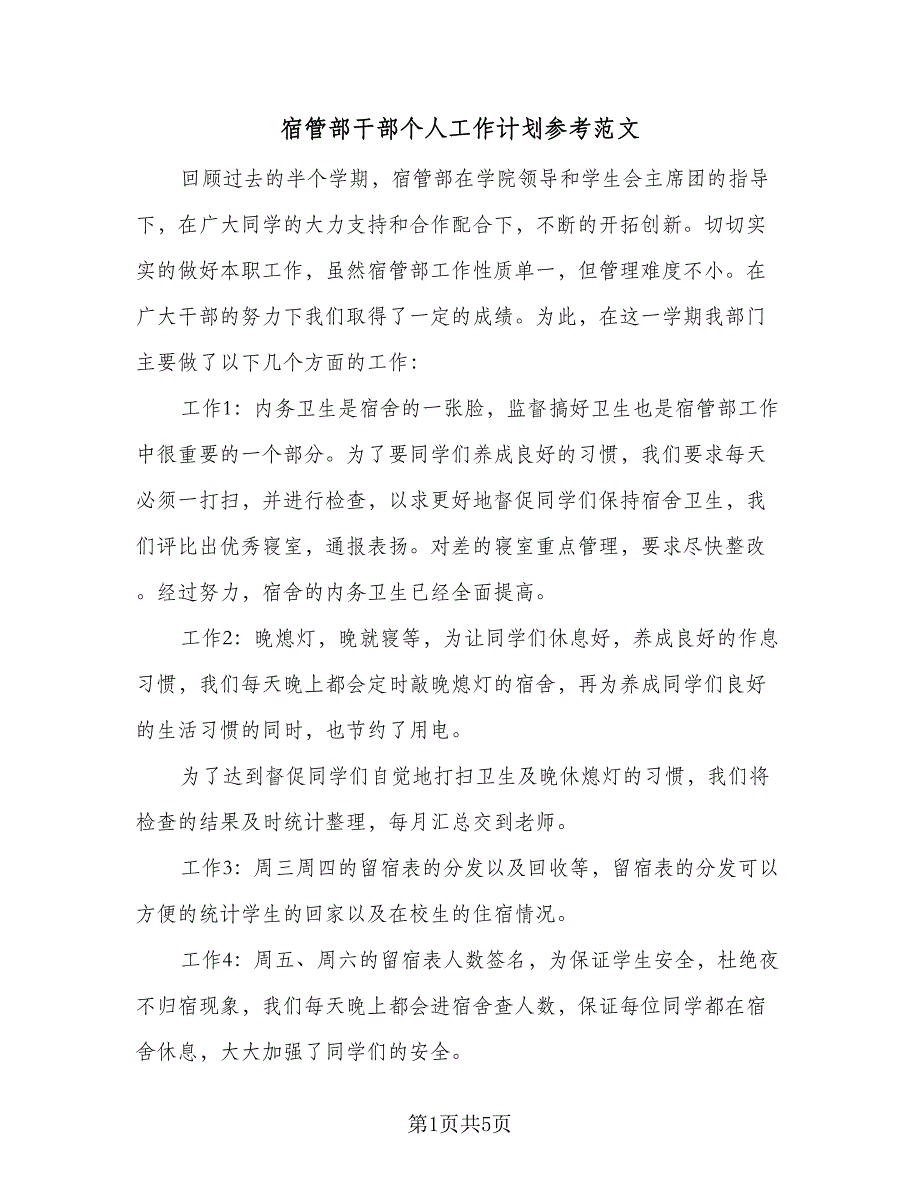 宿管部干部个人工作计划参考范文
回顾过去的半个学期，宿管部在学院领导和学生会主席团的指导
下，在广大同学的大力支持和合作配合下，不断的开拓创新。切切实
实的做好本职工作，虽然宿管部工作性质单一，但管理难度不小。在
广大干部的努力下我们取得了一定的成绩。为此，在这一学期我部门
主要做了以下几个方面的工作：
工作1：内务卫生是宿舍的一张脸，监督搞好卫生也是宿管部工作
中很重要的一个部分。为了要同学们养成良好的习惯，我们要求每天
必须一打扫，并进行检查，以求更好地督促同学们保持宿舍卫生，我
们评比出优秀寝室，通报表扬。对差的寝室重点管理，要求尽快整改
。经过努力，宿舍的内务卫生已经全面提高。
工作2：晚熄灯，晚就寝等，为让同学们休息好，养成良好的作息
习惯，我们每天晚上都会定时敲晚熄灯的宿舍，再为养成同学们良好
的生活习惯的同时，也节约了用电。
为了达到督促同学们自觉地打扫卫生及晚休熄灯的习惯，我们将
检查的结果及时统计整理，每月汇总交到老师。
工作3：周三周四的留宿表的分发以及回收等，留宿表的分发可以
方便的统计学生的回家以及在校生的住宿情况。
工作4：周五、周六的留宿表人数签名，为保证学生安全，杜绝夜
不归宿现象，我们每天晚上都会进宿舍查人数，保证每位同学都在宿
舍休息，大大加强了同学们的安全。
第1页共5页